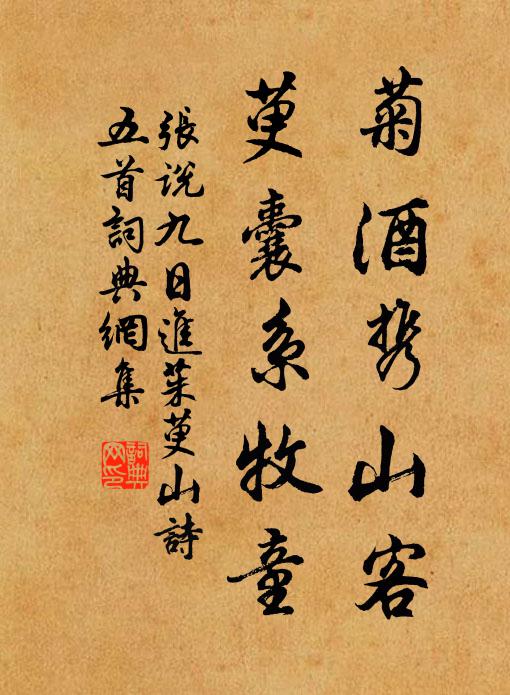 菊酒携山客
萸囊系牧童
張説九日進茱萸山詩
五首詞典網集
詞典网印